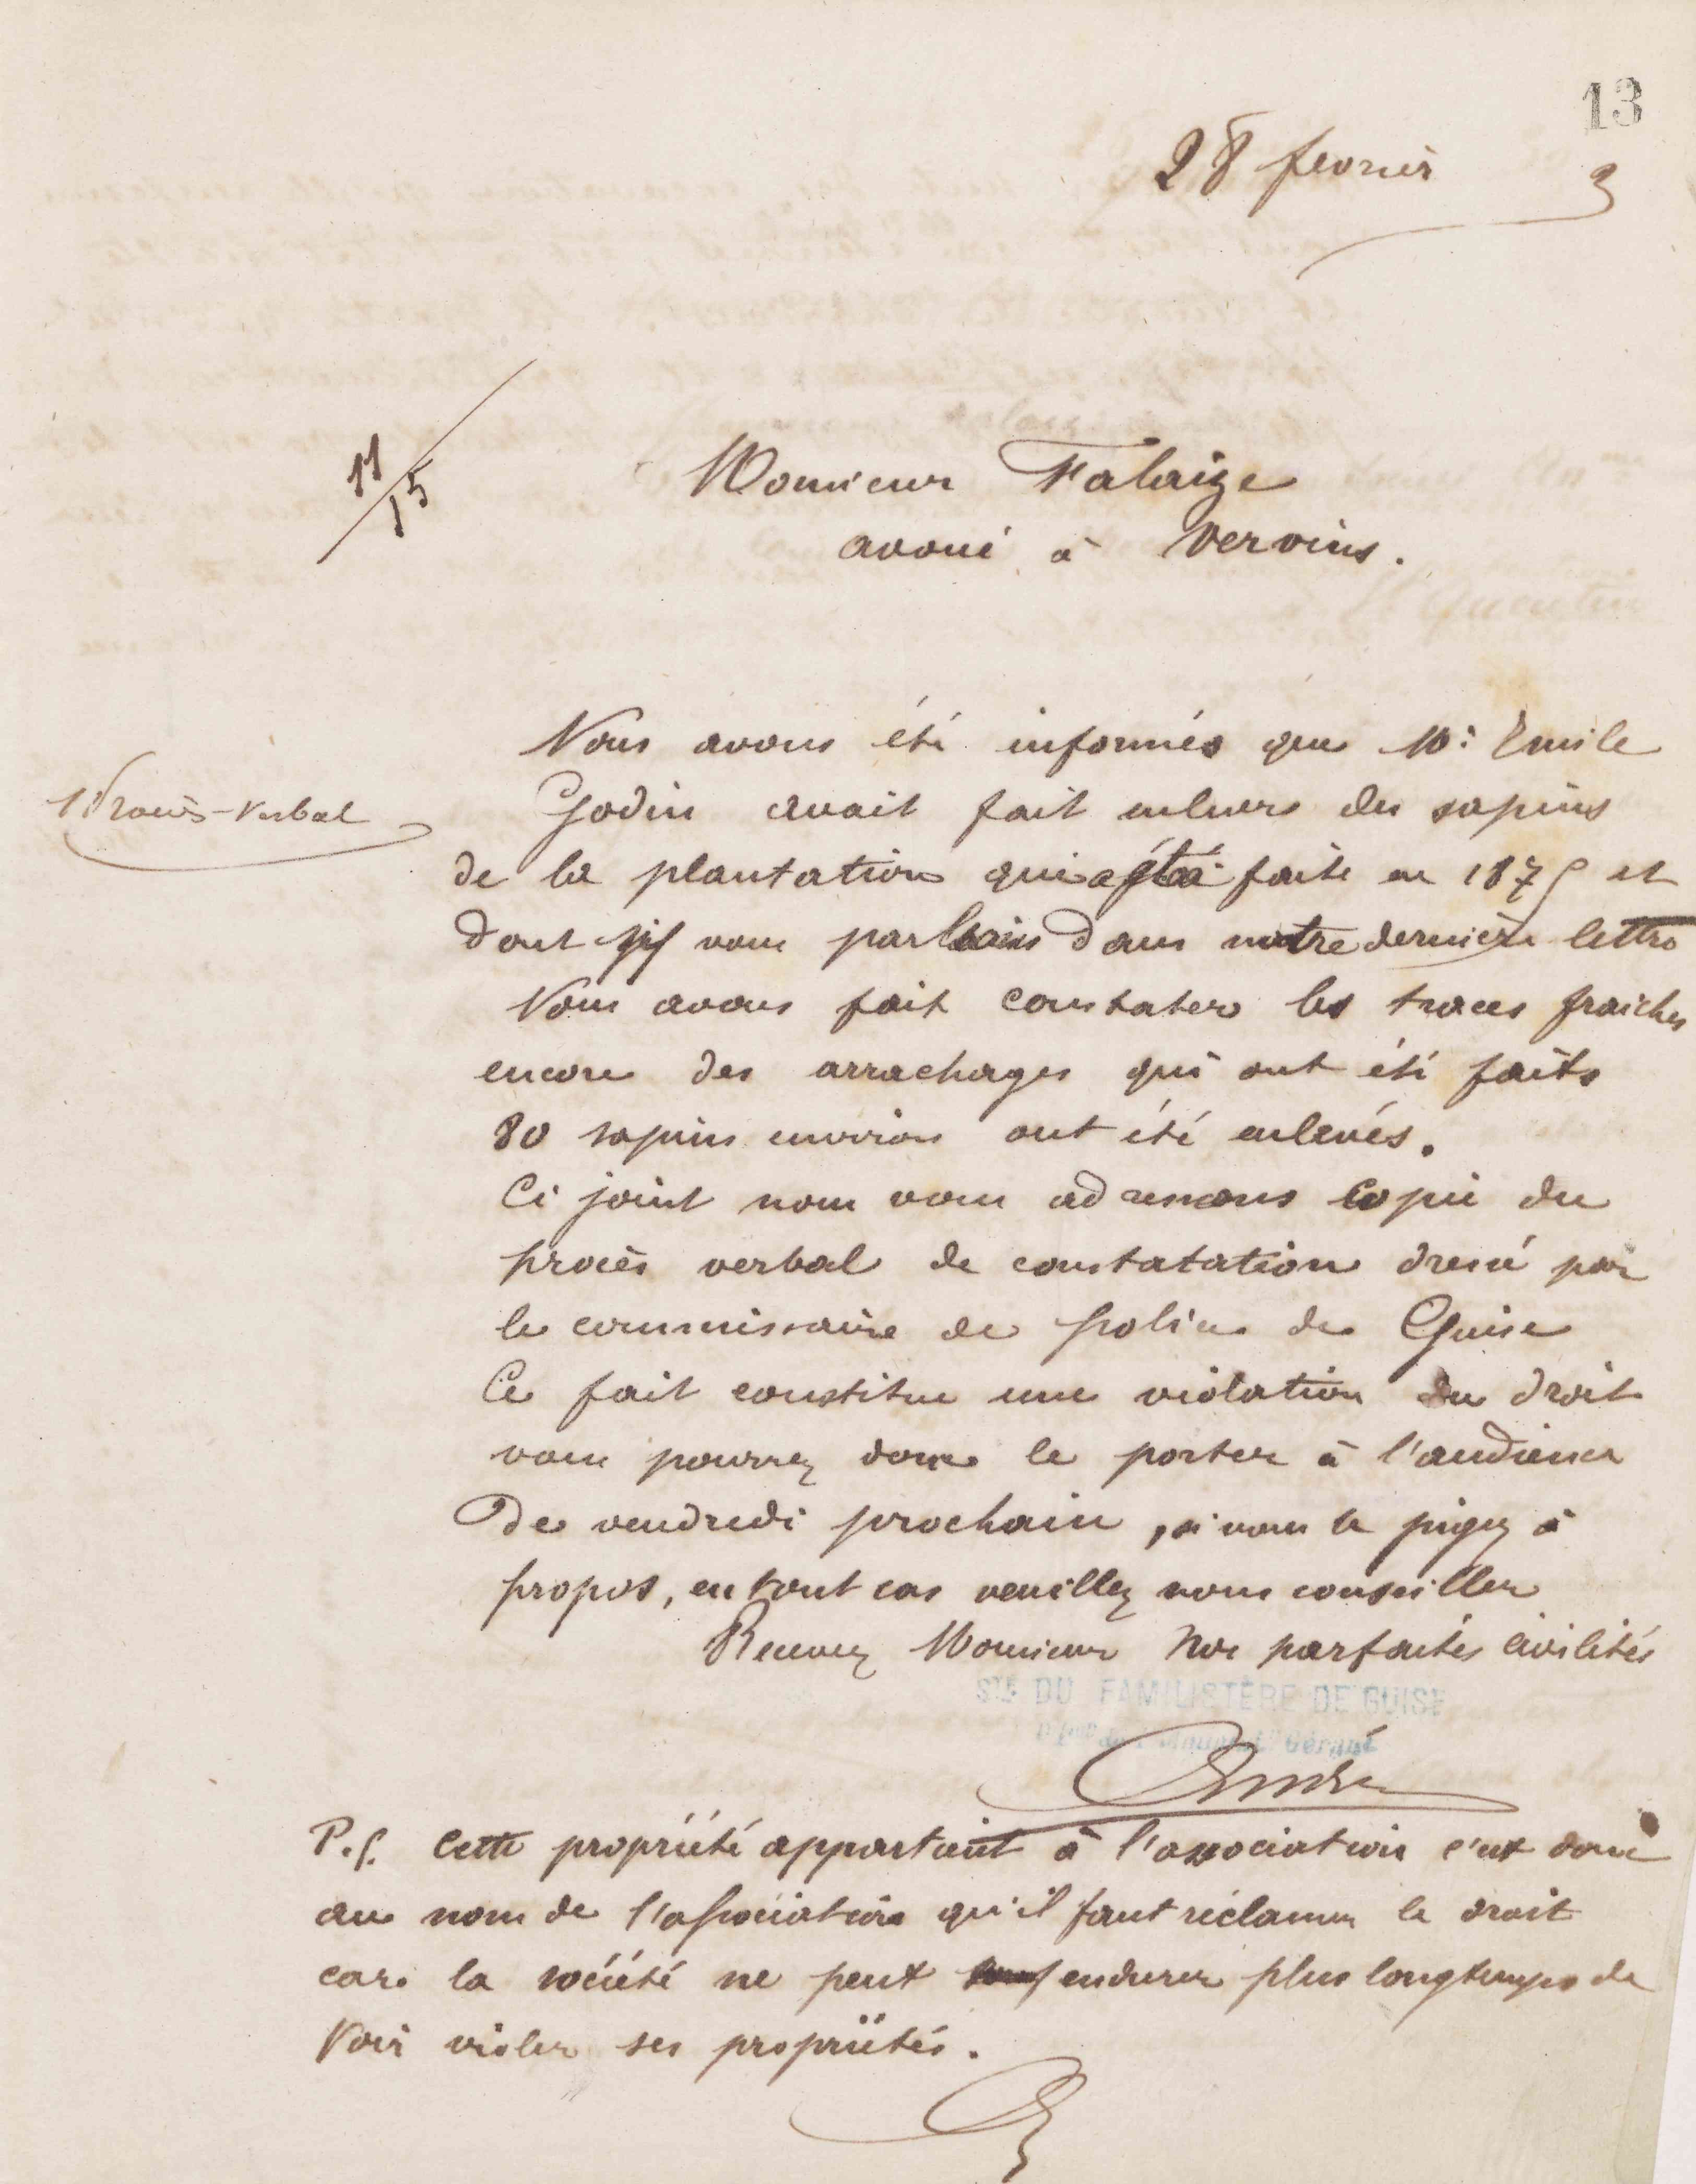 13
28 fevrier 3
11/15
Monsieur Falaize
avoué à Vervins.
Nous avons été informés que Mr Emile
1 Procès-Verbal
Godin avait fait enlever des sapins
de la plantation qui a été faite en 1875 et
dont vous parlais dans notre dernière lettre
Nous avons fait constater les traces fraiches
encore des arrachages qui ont été faits
80 sapins environ ont été enlevés.
Ci joint nous vous adressons copie du
procès verbal de constatation dressé par
le commissaire de police de Guise
Ce fait constitue une violation du droit
vous pourrez donc le porter à l'audience
De vendredi prochain, si vous le jugez à
propos, en tout cas veuillez nous conseiller
Recevez Monsieur Nos parfaites civilités
Sté DU FAMILISTÈRE DE GUISE
Gérant
P.S. Cette propriété appartient à l'association c'est donc
au nom de l'association qu'il faut réclamer le droit
car la société ne peut endurer plus longtemps de
voir violer ses propriétés.